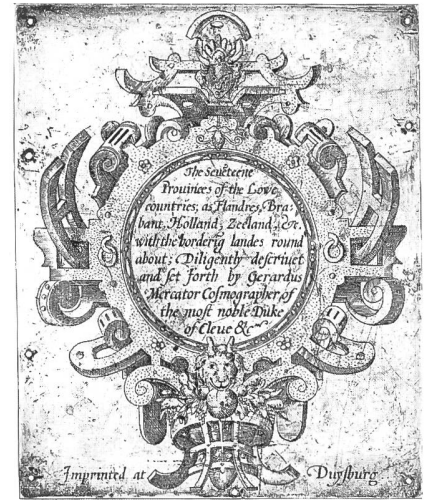 The Seuēteene
Prouinces of the Lowe
countries; as Flandres, Bra:
bant, Holland, Zeeland, &c.
with the borderīg landes round
about; Diligently descriuet
and set forth by Gerardus
Mercator Cosmographer, of
the most noble Duke
of Cleue &c
Imprinted at Duysburg